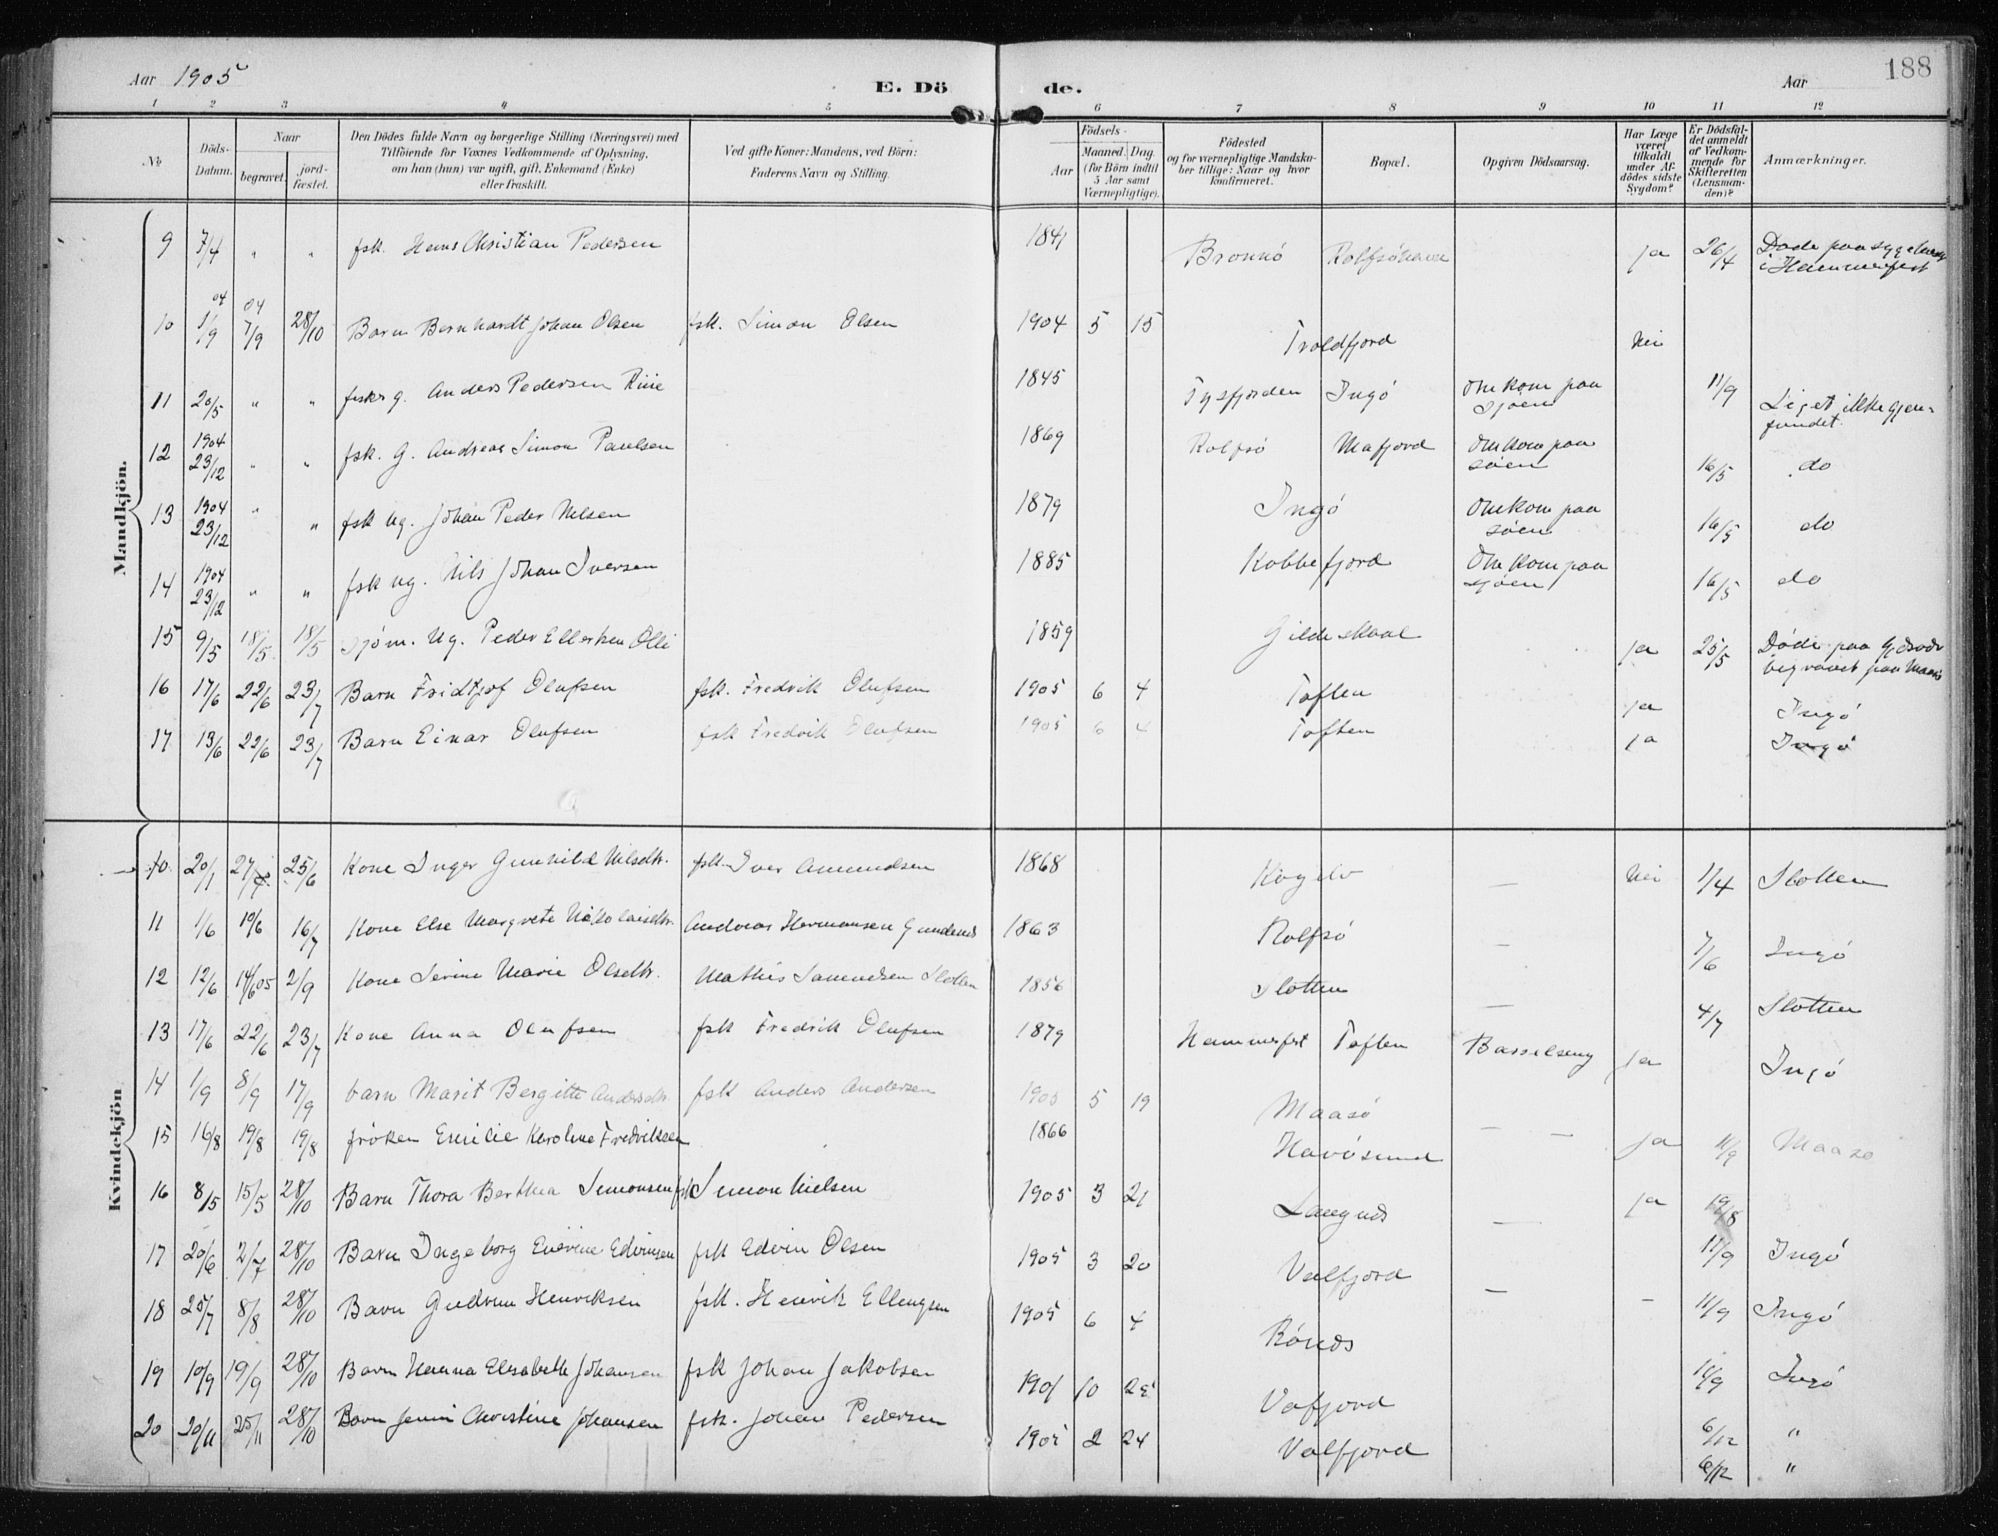 Aar 1905
E. Dö
de.
Aar
188
1 2 3 4 5 6 7 8 9 10 11 12
No
Döds-
Datum.
Naar
begravet.
jord-
fæstet.
Den Dödes fulde Navn og borgerlige Stilling (Næringsvei) med
Tilföiende for Voxnes Vedkommende af Oplysning,
om han (hun) var ugift, gift, Enkemand (Enke)
eller fraskilt.
Ved gifte Koner: Mandens, ved Börn:
Faderens Navn og Stilling.
Födsels-
Aar
Maaned. Dag.
(for Börn indtil
5 Aar samt
Værnepligtige).
Födested
og for værnepligtige Mandska-
ber tillige: Naar og hvor
konfirmeret.
Bopæl.
Opgiven Dödsaarsag.
Har Læge
været
tilkaldt
under Af-
dödes sidste
Sygdom?
Er Dödsfal-
det anmeldt
af Vedkom-
mende for
Skifteretten
(Lensman-
den)?
Anmærkninger.
Mandkjön.
9 7/4 " " fsk. Hans Christian Pedersen 1841 Bronnö Rolfsöhavn ja 26/4 Döde paa sygehus
i Hammerfest
10 04 1/9 04 7/9 28/10 Barn Bernhardt Johan Olsen fsk. Simon Olsen 1904 5 15 Troldfjord Nei
11 20/5 " " fisker g. Anders Pedersen 1845 Tysfjorden Ingö Omkom paa
sjöen 11/9 Liget ikke gjen-
fundet.
12 1904 23/12 " " fsk. G. Andreas Simon Paulsen 1869 Rolfsö Mafjord Omkom paa
söen 16/5 do
13 1904 23/12 " " fsk ug. Johan Peder Nilsen 1879 Ingö Omkom paa
söen 16/5 do
14 1904 23/12 " " fsk ug. Nils Johan Iversen 1885 Kobbefjord Omkom paa
sjöen 16/5 do
15 9/5 18/5 18/5 Sjöm. Ug. Peder Ellersen Olli 1859 Gildeskaal ja 25/5 Döde paa
begravet paa
16 17/6 22/6 23/7 Barn Fridtjof Olufsen fsk. Fredrik Olufsen 1905 6 4 Toften ja Ingö
17 13/6 22/6 23/7 Barn Einar Olufsen fsk Fredrik Olufsen 1905 6 4 Toften ja Ingö
Kvindekjön
10 20/1 27/4 25/6 Kone Inger Gunhild Nilsdtr. fsk. Iver Amundsen 1868 Kogelv — Nei 1/4 Slotten
11 1/6 10/6 16/7 Kone Else Margrete Nikolaisdtr. Andreas Hermansen 1863 Rolfsö — 7/6 Ingö
12 12/6 14/6 05 2/9 Kone Serine Marie Olsdtr. Mathis Samuelsen Slotten 1856 Slotten — 4/7 Slotten
13 17/6 22/6 23/7 Kone Anna Olufsen fsk Fredrik Olufsen 1879 Hammerfest Toften Barselseng ja Ingö
14 1/9 8/9 17/9 barn Marit Bergitte Andersdtr. fsk Anders Andersen 1905 5 19 Maasö
15 16/8 19/8 19/8 fröken Emilie Karoline Fredriksen 1866 Havösund — — ja 11/9 Maasö
16 8/5 15/5 28/10 Barn Thora Berthea Simonsen fsk Simon Nielsen 1905 3 21 Langnes — ja 19/8
17 20/6 2/7 28/10 Barn Ingeborg Edvinsen fsk Edvin Olsen 1905 3 20 Valfjord 11/9 Ingö
18 25/7 8/8 28/10 Barn Gudrun Henriksen fsk. Henrik Ellingsen 1905 6 4 — — 11/9 Ingö
19 10/9 19/9 28/10 Barn Hanna Elisabeth Johansen fsk Johan Jakobsen 1901 10 Vafjord 10/9 Ingö
20 20/11 25/11 28/10 Barn Christine Johansen fsk. Johan Pedersen 1905 2 24 Valfjord 6/12 "
6/12 "